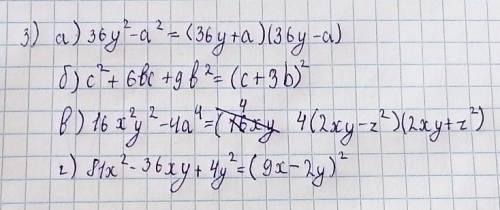 3) а) 36y²-a² = (36y+a)(36y-a)
б) c²+6bc+9b² = (c+3b)²
в) 16x²y²-4a⁴ = ( 4 4(2xy-z²)(2xy+z²)
г) 81x²-36xy+4y² = (9x-2y)²